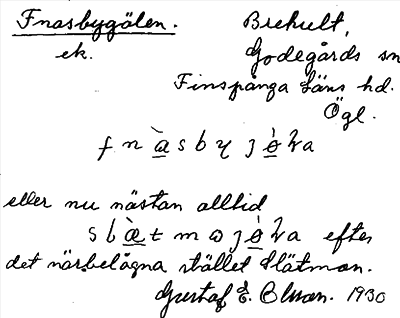 Fnasbygölen. Brekult,
ek. Godegårds sn
Finspånga Läns hd.
Ögl.
f n a s b y j ø ɫ a
eller nu nästan alltid
s l æ t m ω j ø ɫ a efter
det närbelägna stället Slätmon.
Gustaf E. Olsson. 1930